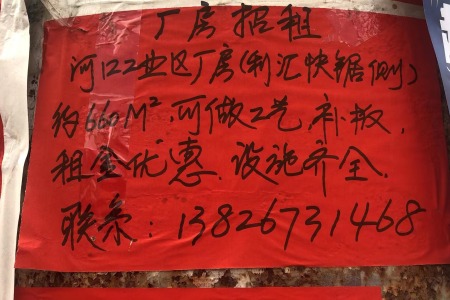 厂房招租
河口工业区厂房(利汇快锯侧)
约660M²,可做工艺,补板,
租金优惠.设施齐全.
联系:13826731468